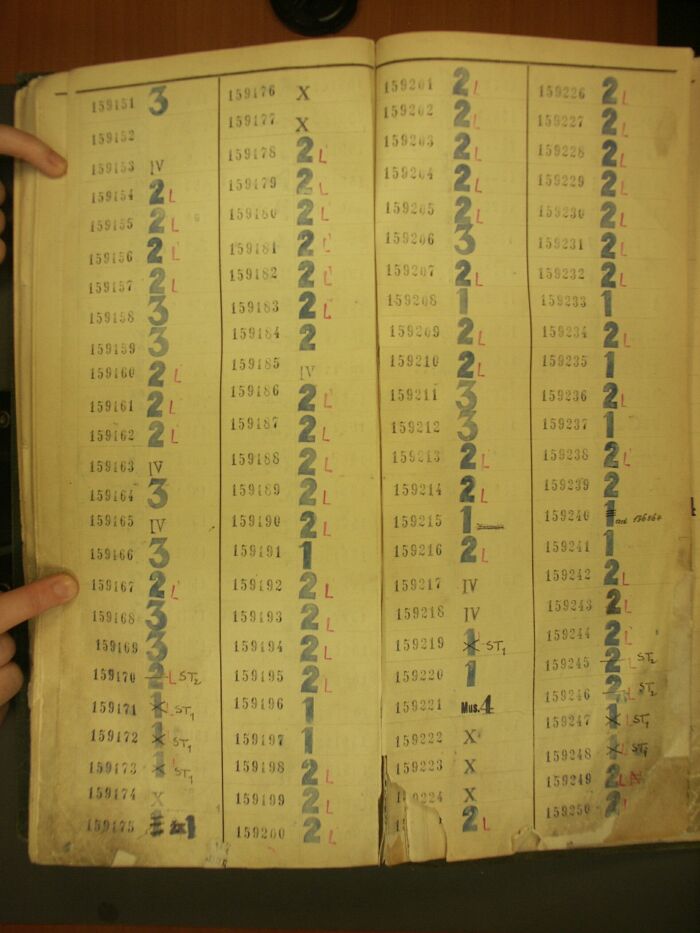 159151 3
159152
159153 IV
159154 2 L
159155 2 L
159156 2 L
159157 2 L
159158 3
159159 3
159160 2 L
159161 2 L
159162 2 L
159163 IV
159164 3
159165 IV
159166 3
159167 2 L
159168 3
159169 3
159170 2 L ST2
159171 1 L ST1
159172 1 ST1
159173 1 ST1
159174 X
159175 1
159176 X
159177 X
159178 2 L
159179 2 L
159180 2 L
159181 2 L
159182 2 L
159183 2 L
159184 2
159185 IV
159186 2 L
159187 2 L
159188 2 L
159189 2 L
159190 2 L
159191 1
159192 2 L
159193 2 L
159194 2 L
159195 2 L
159196 1
159197 1
159198 2 L
159199 2 L
159200 2 L
159201 2 L
159202 2 L
159203 2 L
159204 2 L
159205 2 L
159206 3
159207 2 L
159208 1
159209 2 L
159210 2 L
159211 3
159212 3
159213 2 L
159214 2 L
159215 1
159216 2 L
159217 IV
159218 IV
159219 1 ST1
159220 1
159221 Mus. 4
159222 X
159223 X
9224 X
2 L
159226 2 L
159227 2 L
159228 2 L
159229 2 L
159230 2 L
159231 2 L
159232 2 L
159233 1
159234 2 L
159235 1
159236 2 L
159237 1
159238 2 L
159239 2
159240 1
159241 1
159242 2 L
159243 2 L
159244 2 L
159245 2 L ST2
159246 2 L ST2
159247 1 L ST1
159248 1 L ST1
159249 2 L
159250 2 L